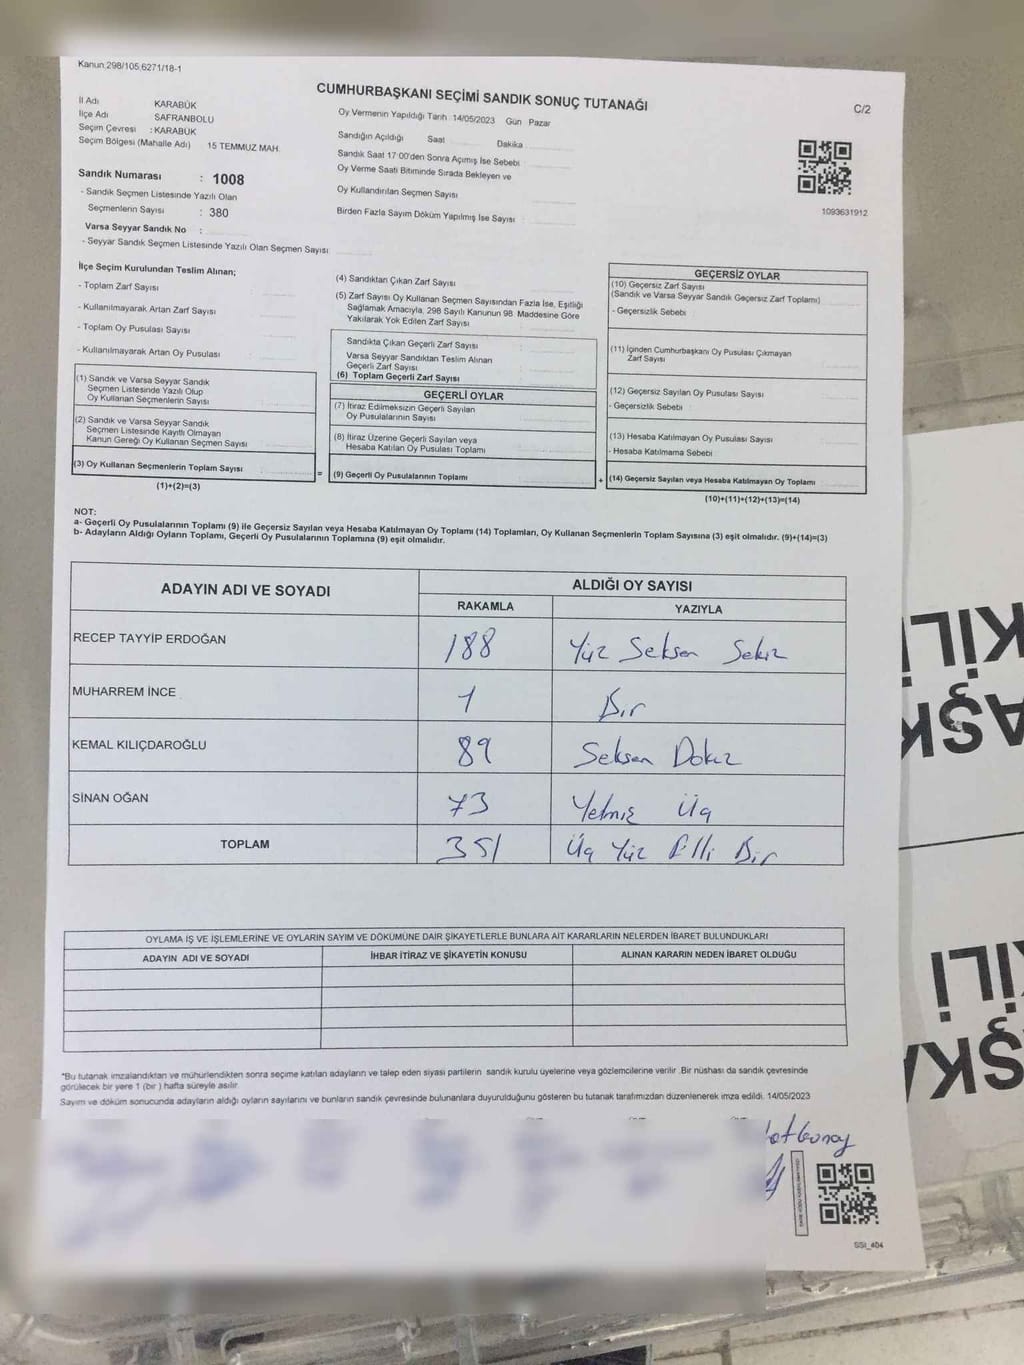 Kanun 298/105,6271/18-1
CUMHURBAŞKANI SEÇİMİ SANDIK SONUÇ TUTANAĞI
C/2
İl Adı KARABÜK
İlçe Adı SAFRANBOLU
Seçim Çevresi : KARABÜK
Seçim Bölgesi (Mahalle Adı) 15 TEMMUZ MAH.
Sandık Numarası : 1008
- Sandık Seçmen Listesinde Yazılı Olan
Seçmenlerin Sayısı : 380
Varsa Seyyar Sandık No :
- Seyyar Sandık Seçmen Listesinde Yazılı Olan Seçmen Sayısı
Oy Vermenin Yapıldığı Tarih 14/05/2023 Gün Pazar
Sandığın Açıldığı Saat Dakika
Sandık Saat 17:00'den Sonra Açımış İse Sebebi
Oy Verme Saati Bitiminde Sırada Bekleyen ve
Oy Kullandırılan Seçmen Sayısı
Birden Fazla Sayım Döküm Yapılmış İse Sayısı
1093631912
İlçe Seçim Kurulundan Teslim Alınan;
- Toplam Zarf Sayısı
- Kullanılmayarak Artan Zarf Sayısı
- Toplam Oy Pusulası Sayısı
- Kullanılmayarak Artan Oy Pusulası
(1) Sandık ve Varsa Seyyar Sandık
Seçmen Listesinde Yazılı Olup
Oy Kullanan Seçmenlerin Sayısı
(2) Sandık ve Varsa Seyyar Sandık
Seçmen Listesinde Kayıtlı Olmayan
Kanun Gereği Oy Kullanan Seçmen Sayısı
(3) Oy Kullanan Seçmenlerin Toplam Sayısı
(1)+(2)=(3)
(4) Sandıktan Çıkan Zarf Sayısı
(5) Zarf Sayısı Oy Kullanan Seçmen Sayısından Fazla İse, Eşitliği
Sağlamak Amacıyla, 298 Sayılı Kanunun 98. Maddesine Göre
Yakılarak Yok Edilen Zarf Sayısı
Sandıkta Çıkan Geçerli Zarf Sayısı
Varsa Seyyar Sandıktan Teslim Alınan
Geçerli Zarf Sayısı
(6) Toplam Geçerli Zarf Sayısı
GEÇERLİ OYLAR
(7) İtiraz Edimeksizin Geçerli Sayılan
Oy Pusulalarının Sayısı
(8) İtiraz Üzerine Geçerli Sayılan veya
Hesaba Katılan Oy Pusulası Toplamı
= (9) Geçerli Oy Pusulalarının Toplamı
GEÇERSİZ OYLAR
(10) Geçersiz Zarf Sayısı
(Sandık ve Varsa Seyyar Sandık Geçersiz Zarf Toplamı)
- Geçersizlik Sebebi
(11) İçinden Cumhurbaşkanı Oy Pusulası Çıkmayan
Zarf Sayısı
(12) Geçersiz Sayılan Oy Pusulası Sayısı
- Geçersizlik Sebebi
(13) Hesaba Katılmayan Oy Pusulası Sayısı
- Hesaba Katılmama Sebebi
+ (14) Geçersiz Sayılan veya Hesaba Katılmayan Oy Toplamı
(10)+(11)+(12)+(13)=(14)
NOT:
a- Geçerli Oy Pusulalarının Toplamı (9) ile Geçersiz Sayılan veya Hesaba Katılmayan Oy Toplamı (14) Toplamları, Oy Kullanan Seçmenlerin Toplam Sayısına (3) eşit olmalıdır. (9)+(14)=(3)
b- Adayların Aldığı Oyların Toplamı, Geçerli Oy Pusulalarının Toplamına (9) eşit olmalıdır.
ADAYIN ADI VE SOYADI ALDIĞI OY SAYISI
RAKAMLA YAZIYLA
RECEP TAYYİP ERDOĞAN 188 Yüz Seksen Sekiz
MUHARREM İNCE 1 Bir
KEMAL KILIÇDAROĞLU 89 Seksen Dokuz
SİNAN OĞAN 73 Yetmiş Üç
TOPLAM 351 Üç Yüz Elli Bir
OYLAMA İŞ VE İŞLEMLERİNE VE OYLARIN SAYIM VE DÖKÜMÜNE DAİR ŞİKAYETLERLE BUNLARA AİT KARARLARIN NELERDEN İBARET BULUNDUKLARI
ADAYIN ADI VE SOYADI İHBAR İTİRAZ VE ŞİKAYETİN KONUSU ALINAN KARARIN NEDEN İBARET OLDUĞU
*Bu tutanak imzalandıktan ve mühürlendikten sonra seçime katılan adayların ve talep eden siyasi partilerin sandık kurulu üyelerine veya gözlemcilerine verilir .Bir nüshası da sandık çevresinde
görülecek bir yere 1 (bir ) hafta süreyle asılır.
Sayım ve döküm sonucunda adayların aldığı oyların sayılarını ve bunların sandık çevresinde bulunanlara duyurulduğunu gösteren bu tutanak tarafımızdan düzenlenerek imza edildi. 14/05/2023
SSI_404